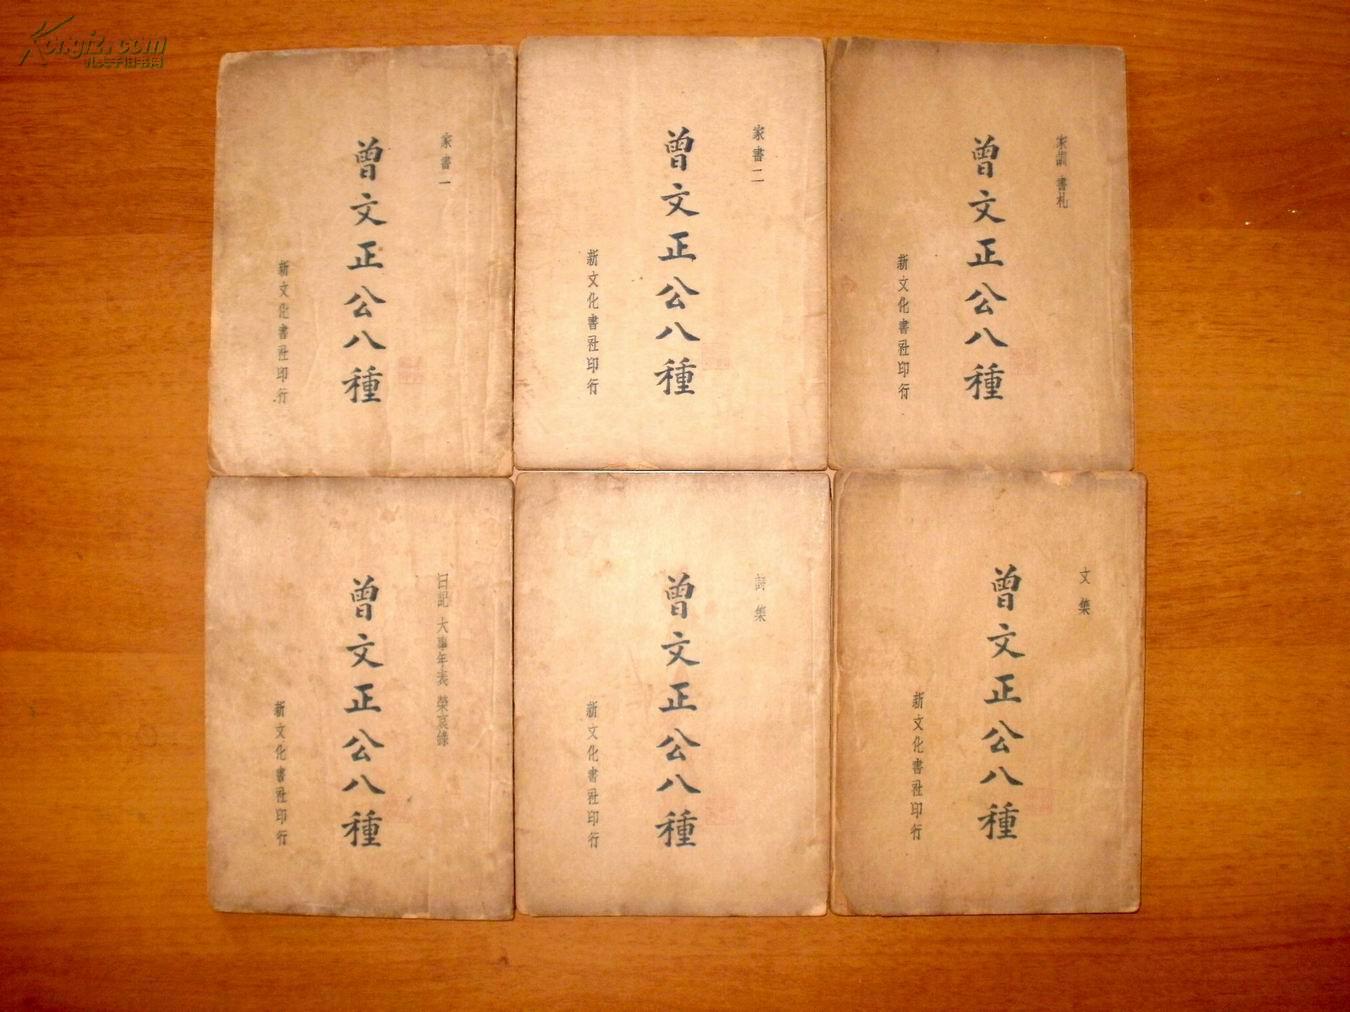 Kongfz.com
孔夫子旧书网
家書一
曾文正公八種
新文化書社印行
家書二
曾文正公八種
新文化書社印行
家訓 書札
曾文正公八種
新文化書社印行
日記 大事年表 榮哀錄
曾文正公八種
新文化書社印行
詩集
曾文正公八種
新文化書社印行
文集
曾文正公八種
新文化書社印行